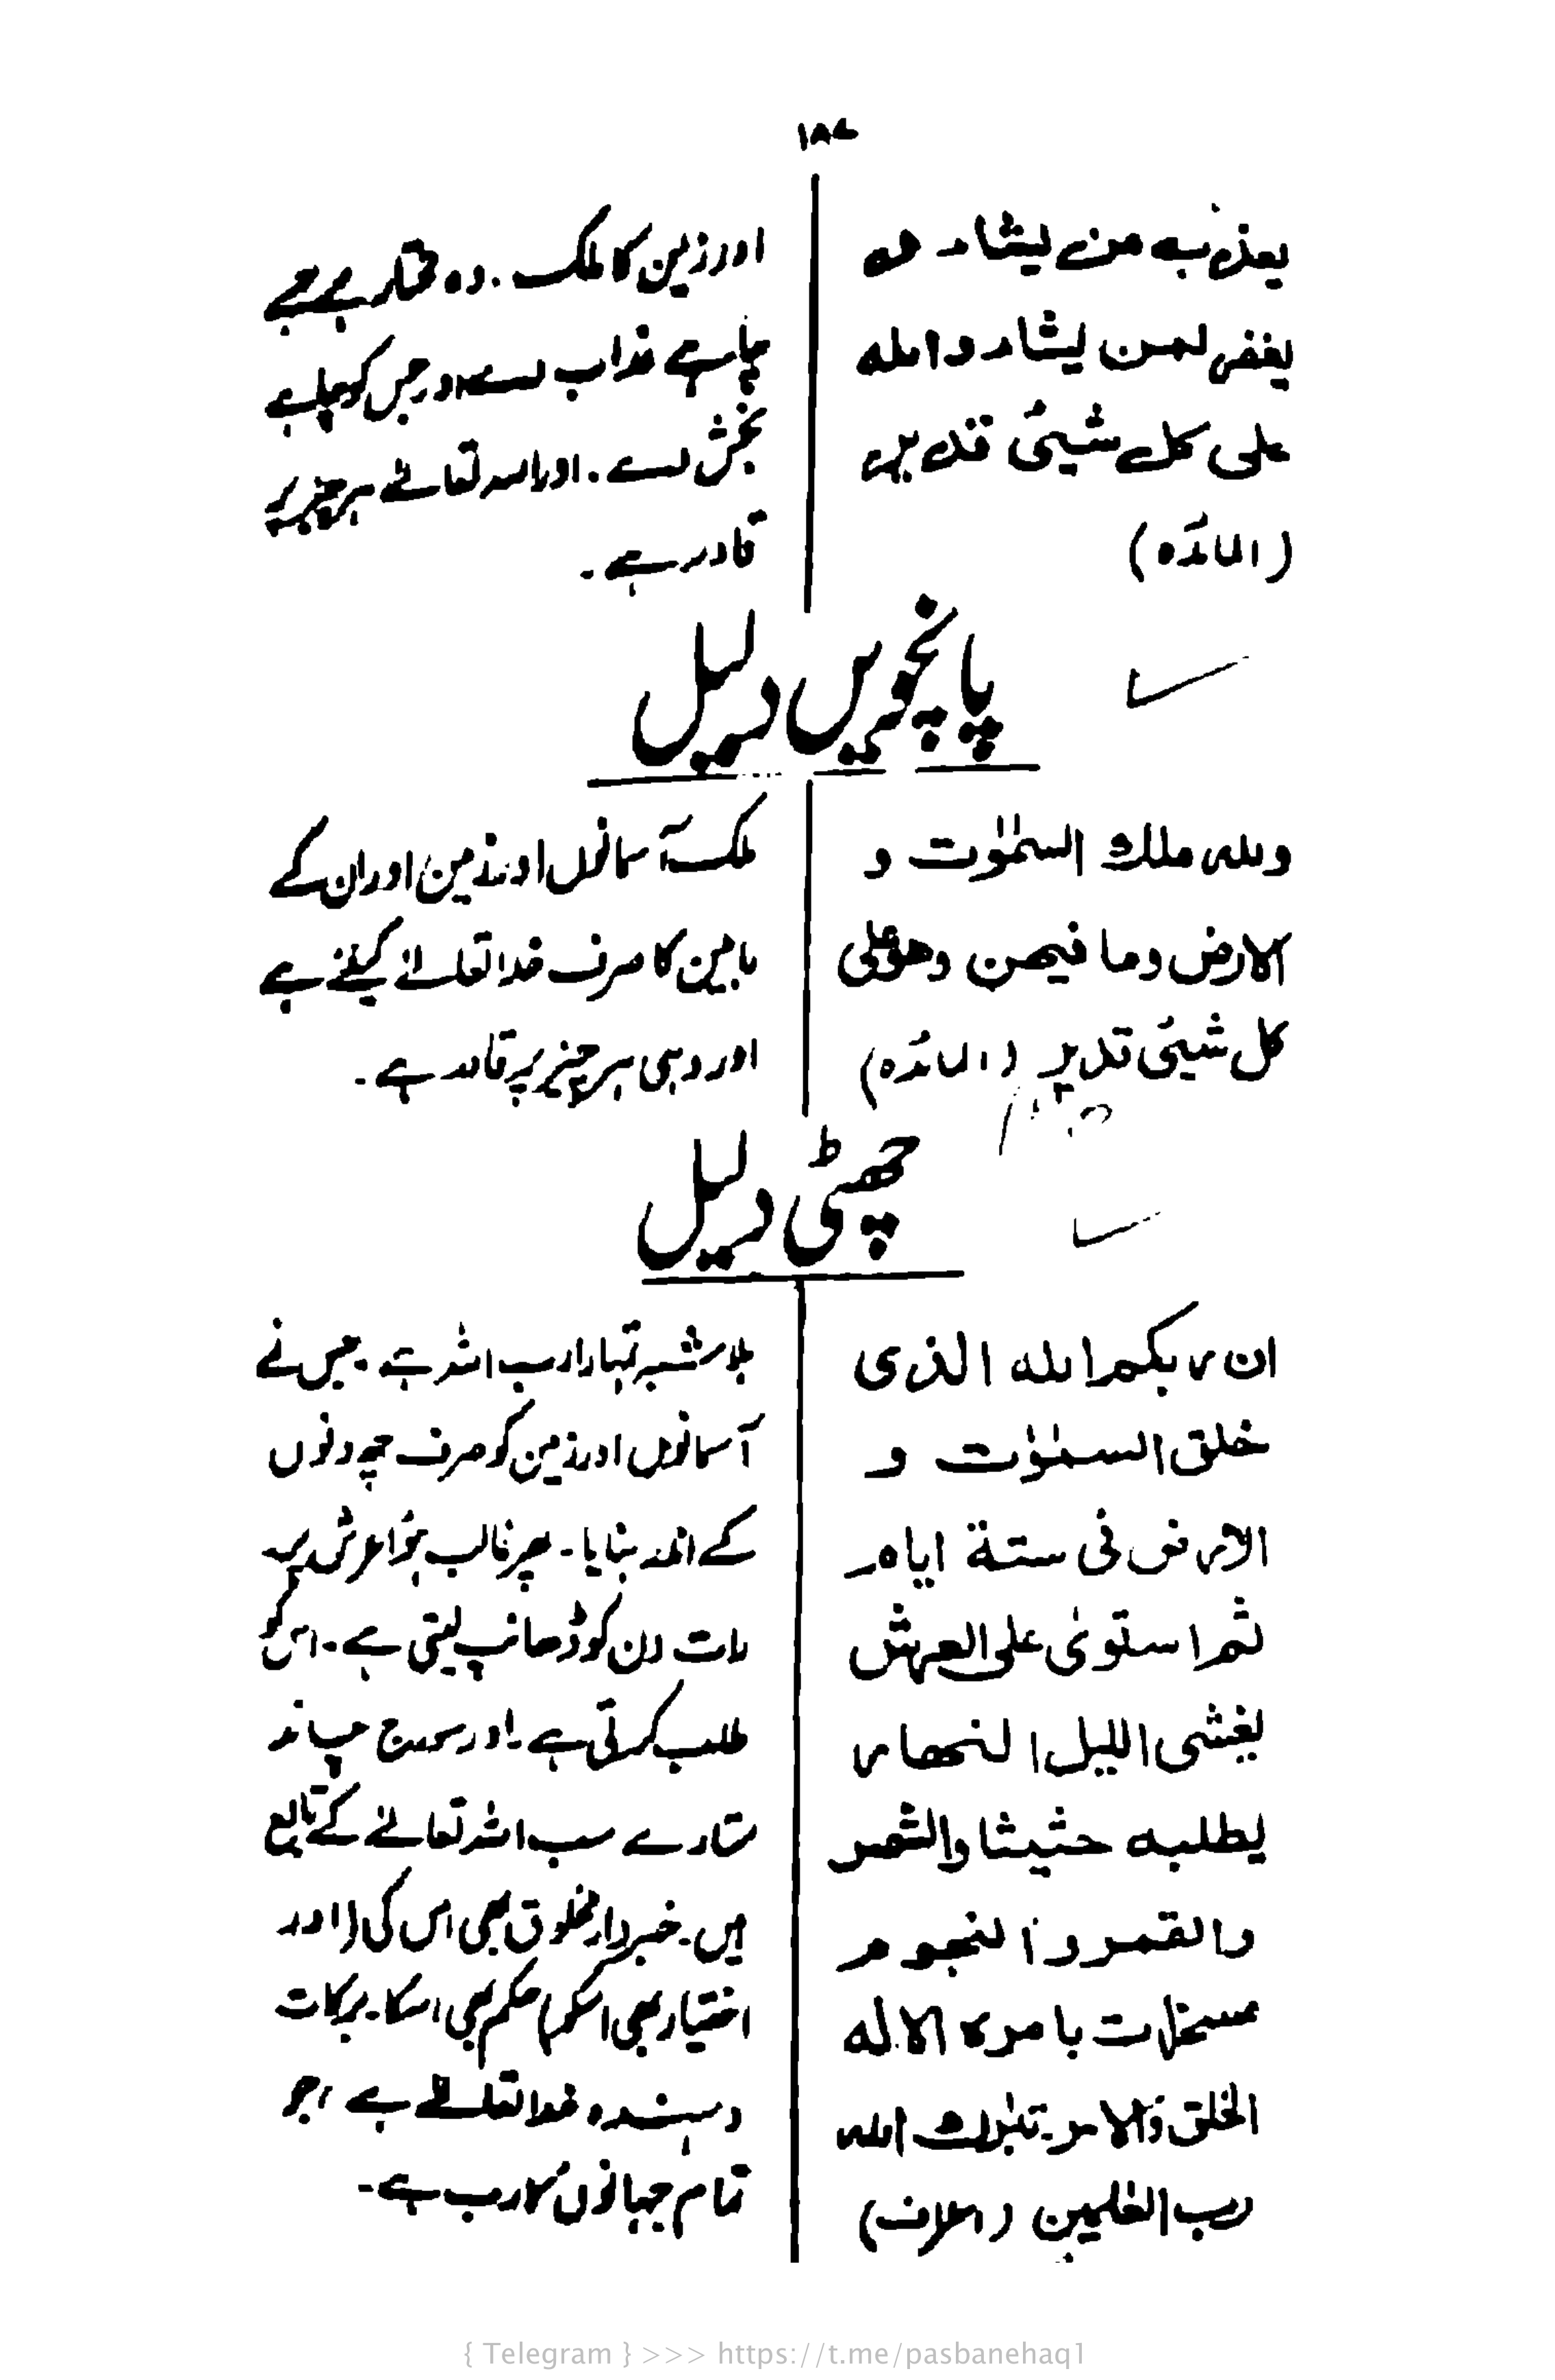 ۱۸۷
یعذب به من یشاء و
یغفر لمن یشاء واللہ
علی کل شیئ قدیر
(المائدہ)
اور زمین کا ملک. وہ مختار ہے جسے
چاہے عذاب دے اور جس کو چاہے
بخش دے. اور اللہ تعالےٰ ہر چیز پر
قادر ہے.
پانچویں دلیل
وللہ ملك السمٰوٰت و
الارض وما فیھن وھو علی
کل شیئ قدیر (المائدہ)
ملک آسمانوں اور زمین اور ان کے
مابین کا صرف خدا تعالےٰ کیلئے ہے
اور وہی ہر چیز پر قادر ہے.
چھٹی دلیل
ان ربکم اللہ الذی
خلق السمٰوٰت و
الارض فی ستة ایام
ثم استویٰ علی العرش
یغشی اللیل النھار
یطلبه حثیثا والشمس
والقمر والنجوم
مسخرات بامرہ الا له
الخلق والامر۔ تبٰرك اللہ
رب العٰلمین (اعراف)
بلا شبہ تمہارا رب اللہ ہے۔ جس نے
آسمانوں اور زمین کو صرف چھ دنوں
کے اندر بنایا۔ پھر غالب ہوا عرش پر
رات دن کو ڈھانپ لیتی ہے۔ اس کو
طلب کرتی ہے۔ اور سورج چاند
ستارے سب اللہ تعالےٰ کے تابع
ہیں۔ خبردار مخلوق بھی اس کی (اور
اختیار بھی اسکا) حکم بھی اسکا۔ برکات
دہندہ خدا تعالےٰ ہے، جو
تمام جہانوں کا رب ہے۔
{ Telegram } >>> https://t.me/pasbanehaq1